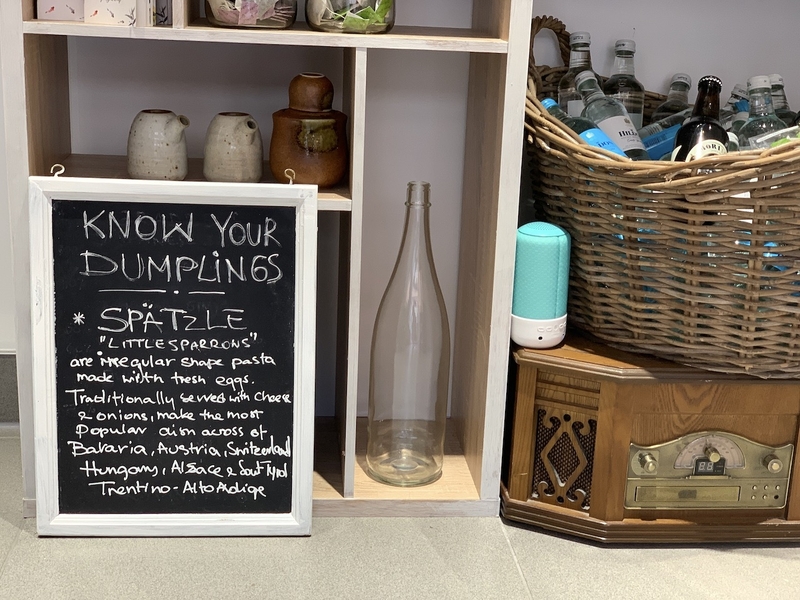 KNOW YOUR
DUMPLINGS
* SPÄTZLE
"LITTLESPARRONS"
are irregular shape pasta
made with fresh eggs.
Traditionally served with cheese
& onions, make the most
Popular dish across of
Bavaria, Austria, Switzerland
Hungary, Alsace & Sout Tyrol
Trentino - Alto Adige
88